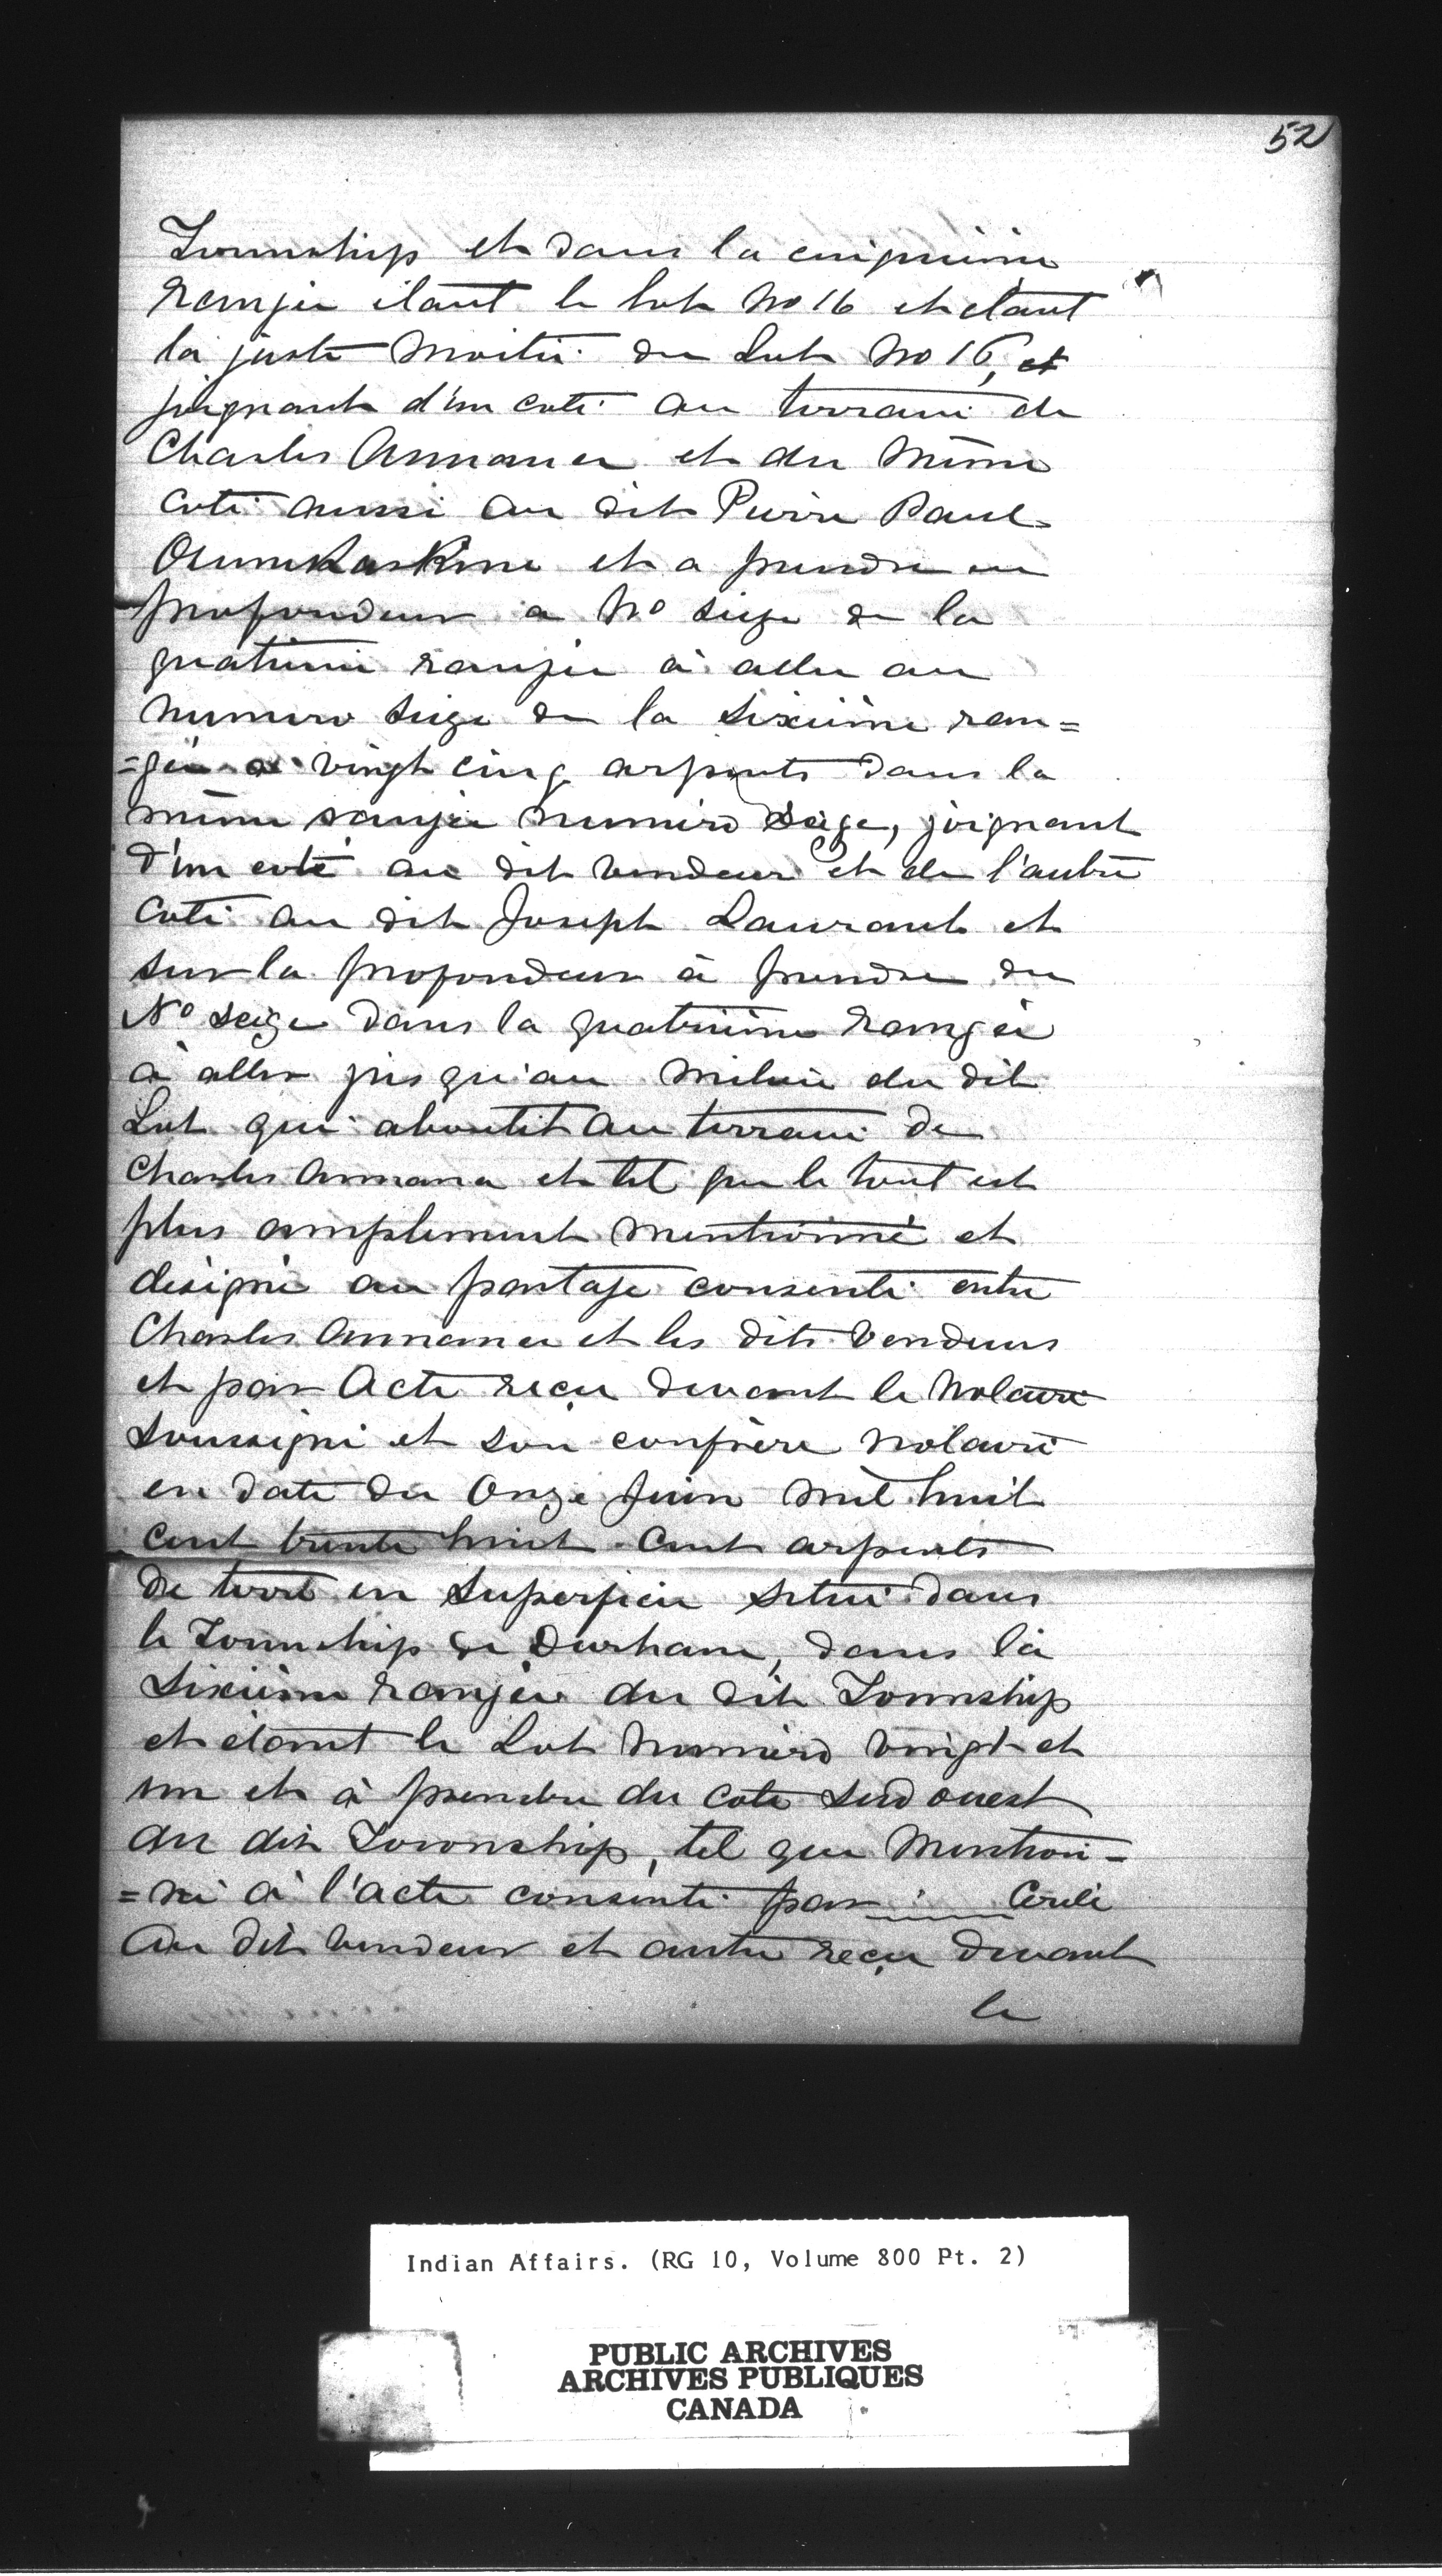 52
Township et dans la cinquième
rangée étant le lot No 16 et étant
la juste moitié du Lot No 16, et
joignant d'un coté au terrain de
Charles Annance et du même
coté aussi au dit Pierre Paul
Osunkaskine et a prendre en
profondeur a No seize de la
quatrième rangée à aller au
numero seize de la sixième ran=
=gée a vingt cinq arpents dans la
même rangée numéro seize, joignant
d'un coté au dit vendeur et de l'autre
coté au dit Joseph Laurant et
sur la profondeur à prendre du
No seize dans la quatrième rangée
à aller jusqu'au milieu du dit
Lot qui aboutit au terrain de
Charles Annance et tel que le tout est
plus amplement mentionné et
désigné au partage consenti entre
Charles Annance et les dits vendeurs
et par Acte reçu devant le Notaire
soussigné et son confrère Notaire
en date du Onze Juin mil huit
cent trente huit. Cent arpents
de terre en superficie situé dans
le Township de Durham, dans la
sixième rangée du dit Township
et étant le Lot numéro vingt et
un et à prendre du coté sud ouest
du dit Township, tel que mention=
=né à l'acte consenti par
au dit vendeur et autre reçu devant
le
Indian Affairs. (RG 10, Volume 800 Pt. 2)
PUBLIC ARCHIVES
ARCHIVES PUBLIQUES
CANADA